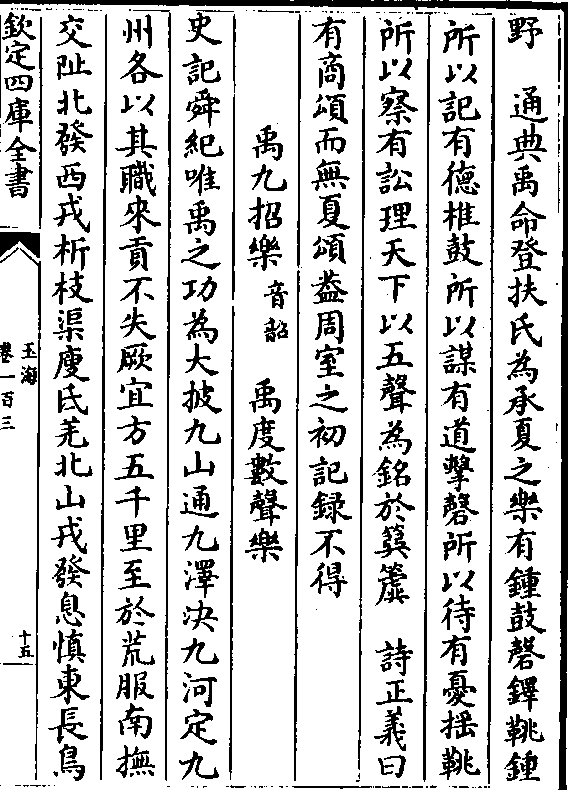 野　通典禹命登扶氏為承夏之樂有鍾鼓磬鐸鞉鍾
所以記有德椎鼓所以謀有道擊磬所以待有憂揺鞉
所以察有訟理天下以五聲為銘於簨簴　詩正義曰
有商頌而無夏頌葢周室之初記録不得
禹九招樂音韶　禹度數聲樂
史記舜紀唯禹之功為大披九山通九澤决九河定九
州各以其職來貢不失厥宜方五千里至於荒服南撫
交阯北發西戎析枝渠廋氐羌北山戎發息慎東長鳥
欽定四庫全書
玉海
卷一百三
十五